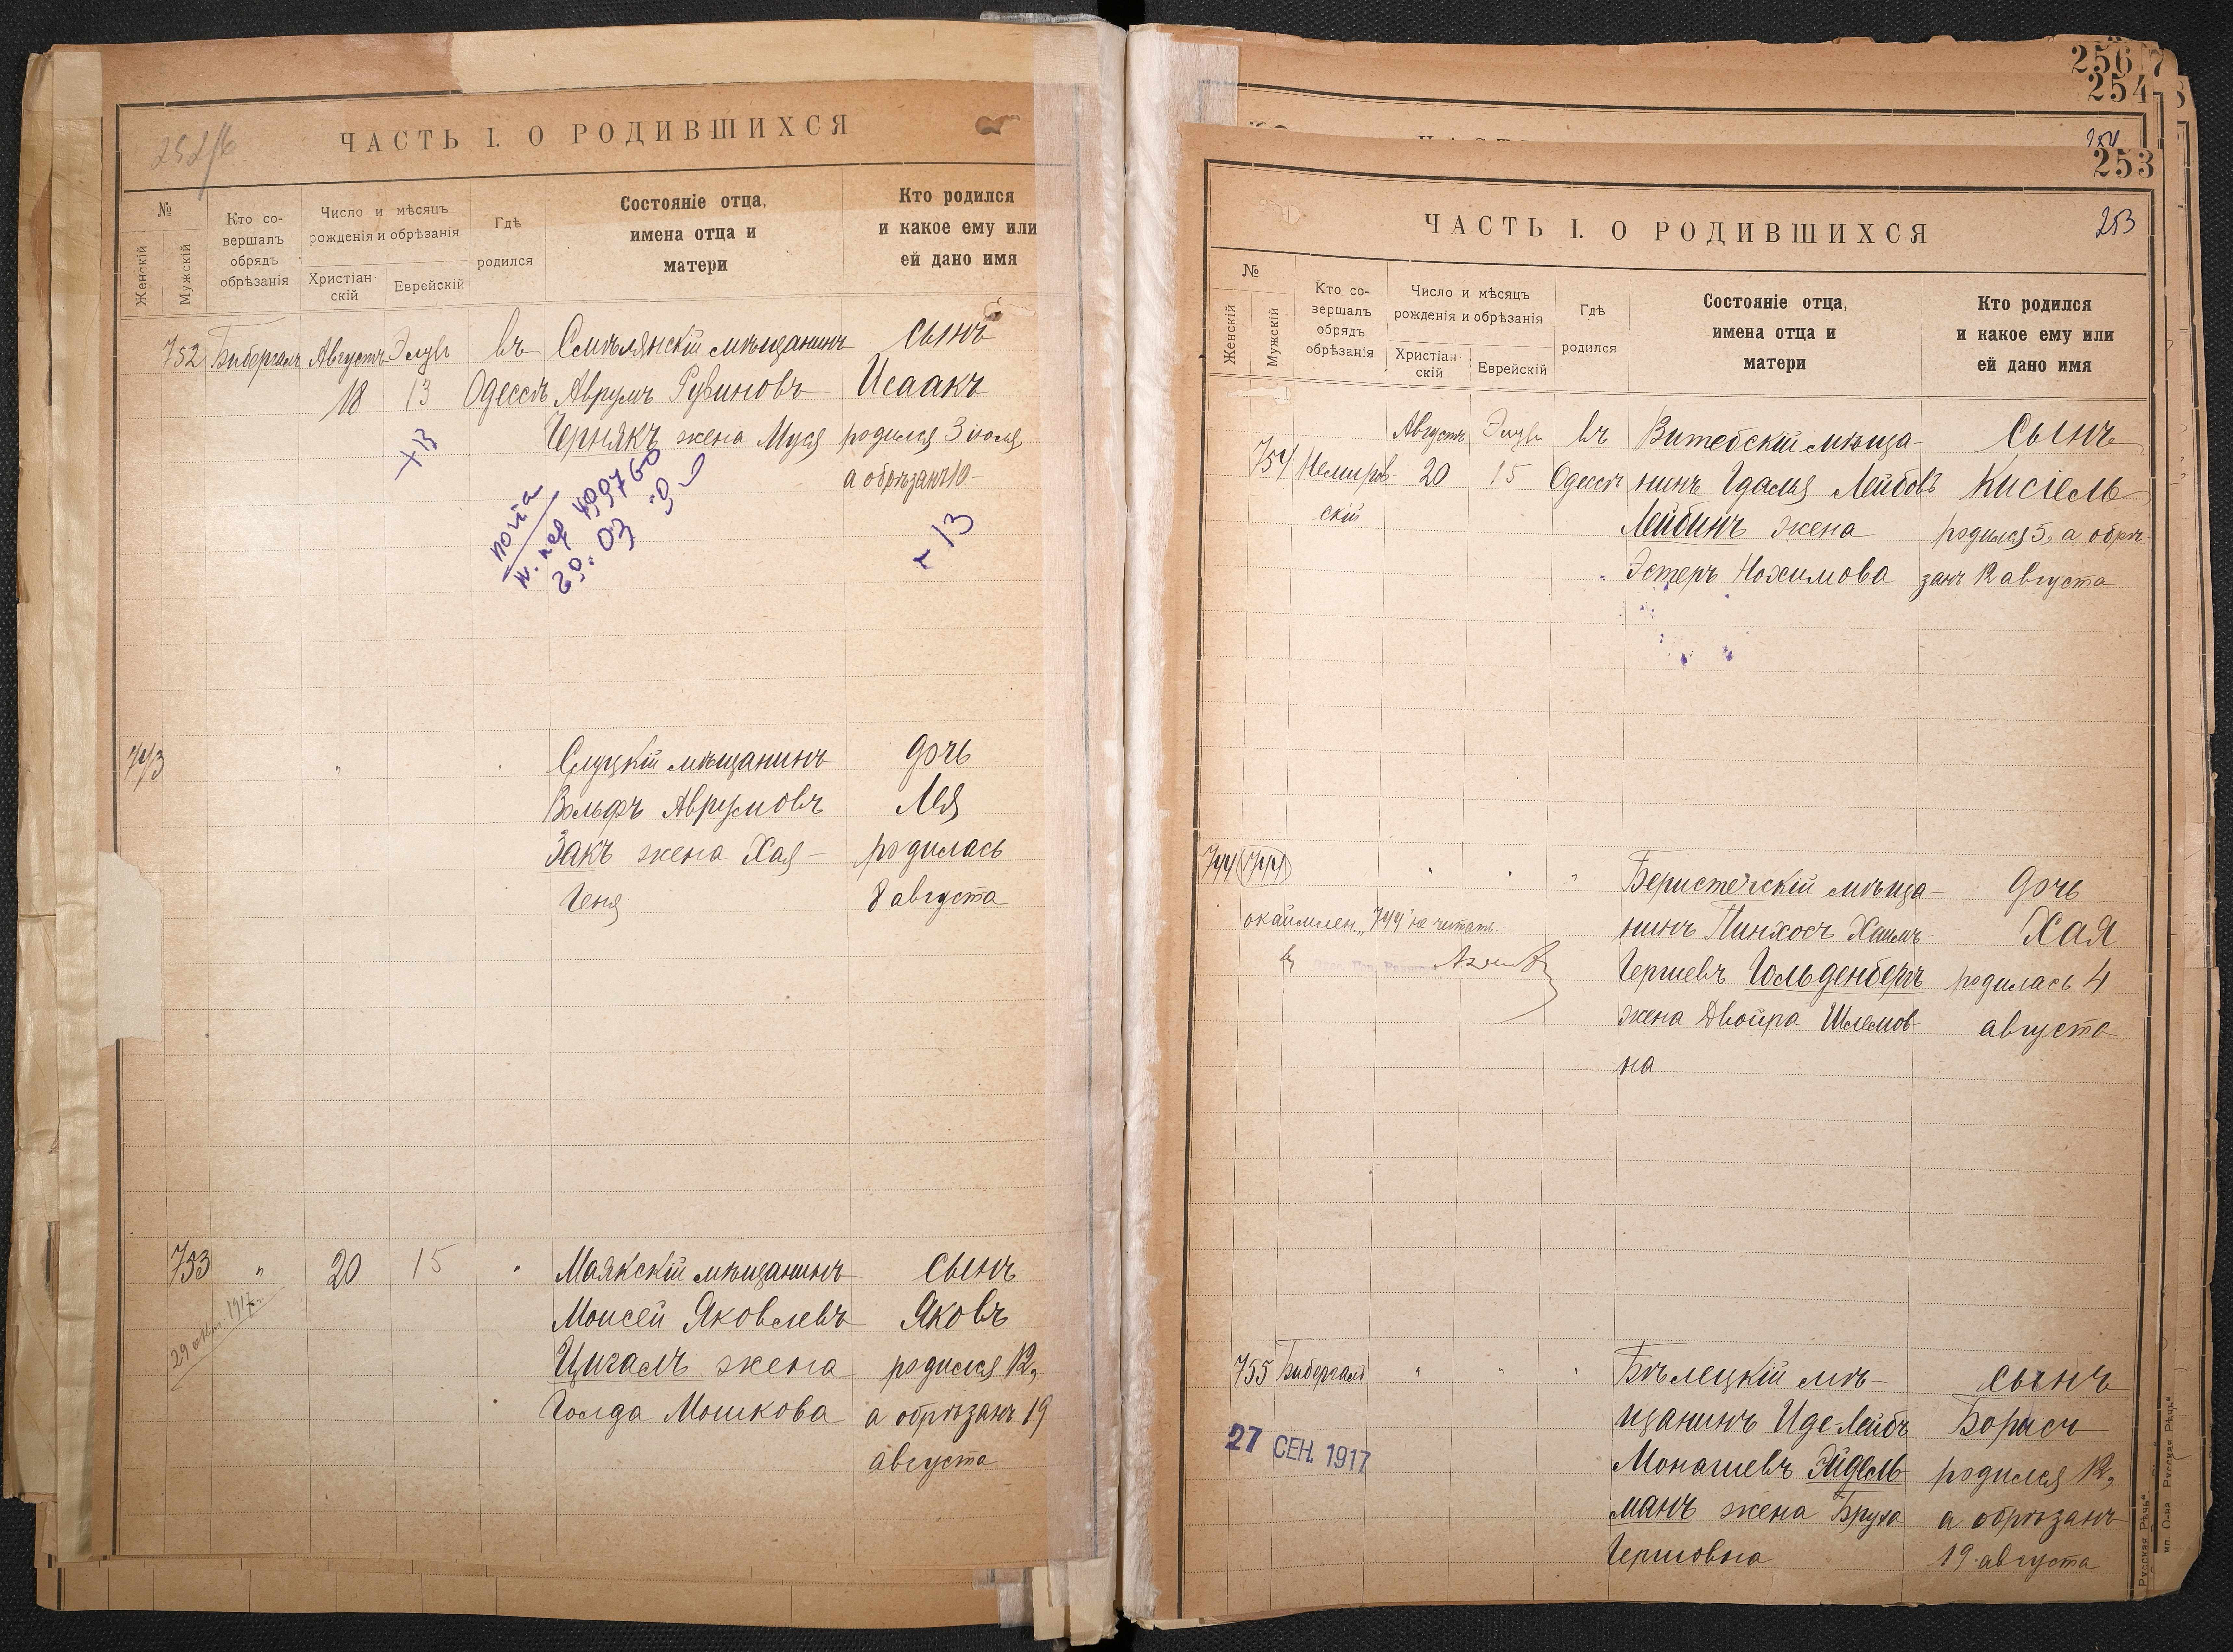 252/б
ЧАСТЬ I. О РОДИВШИХСЯ
№
Женскій
Мужскій
Кто со-
вершалъ
обрядъ
обрѣзанія
Число и мѣсяцъ
рожденія и обрѣзанія
Христіан-
скій
Еврейскій
Гдѣ
родился
Состояніе отца,
имена отца и
матери
Кто родился
и какое ему или
ей дано имя
752 Бибергалъ Августъ Элулъ въ Смѣлянскій мѣщанинъ сынъ
18 13 Одессѣ Аврумъ Рувиновъ Исаакъ
Чернякъ жена Муся родился 3 іюля,
а обрѣзанъ 10
+13
почта
29.03
- 13
743 Слуцкій мѣщанинъ дочь
Вольфъ Аврумовъ Лея
Закъ жена Хая- родилась
Геня 8 августа
753 " 20 15 " Маякскій мѣщанинъ сынъ
29 окт. 1917 г.
Моисей Яковлевъ Яковъ
Цигалъ жена родился 12,
Голда Мошкова а обрѣзанъ 19
августа
256
7
254
253
253
ЧАСТЬ I. О РОДИВШИХСЯ
№
Женскій
Мужскій
Кто со-
вершалъ
обрядъ
обрѣзанія
Число и мѣсяцъ
рожденія и обрѣзанія
Христіан-
скій
Еврейскій
Гдѣ
родился
Состояніе отца,
имена отца и
матери
Кто родился
и какое ему или
ей дано имя
Августъ Элулъ въ Витебскій мѣща- сынъ
754 Немиров- 20 15 Одессѣ нинъ Гдалья Лейбовъ Кисіель
скій Лейбинъ жена родился 5, а обрѣ-
Эстеръ Нохимова занъ 12 августа
744 (744) " " " Берестечскій мѣща- дочь
окаймлен. "744" не читать.-
нинъ Пинхосъ Хаимъ- Хая
Гершевъ Гольденбергъ родилась 4
жена Двойра Шлемов- августа
на
755 Бибергалъ " " " Бѣлецкій мѣ- сынъ
щанинъ Иде-Лейбъ Борисъ
27 СЕН. 1917
Монашевъ Эйдель- родился 12,
манъ жена Бруха а обрѣзанъ
Гершовна 19 августа
Русская Рѣчь"